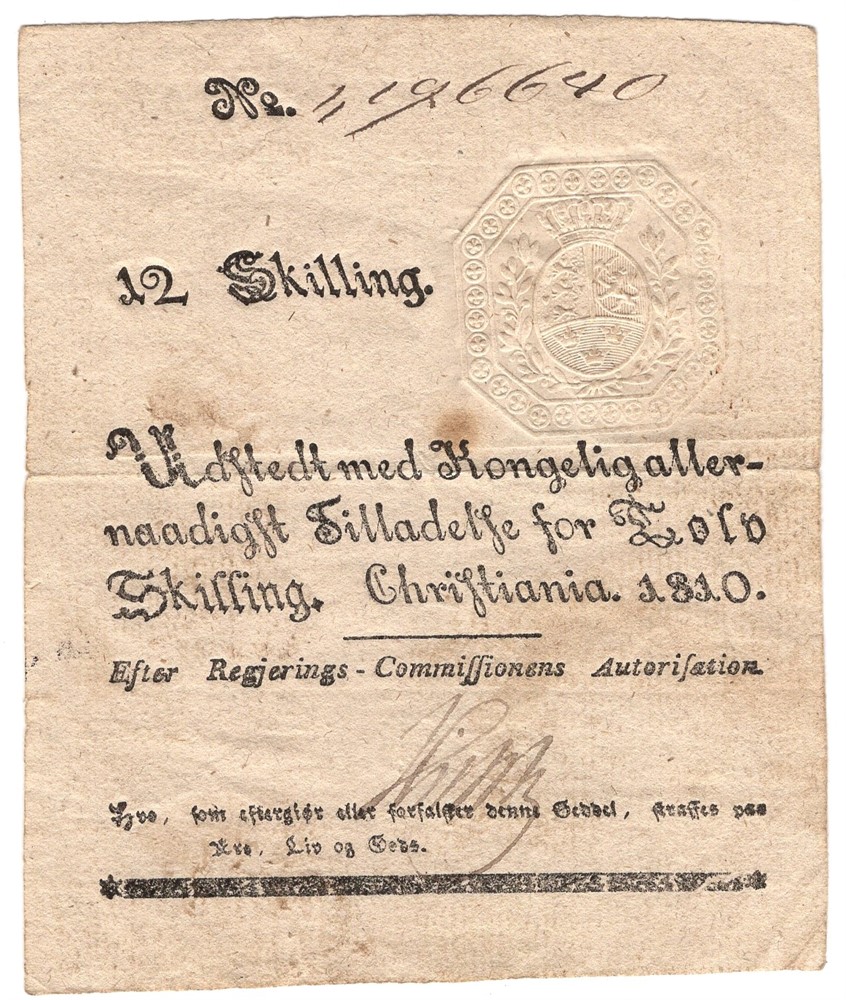 No. 4196640
12 Skilling.
Udstedt med Kongelig aller-
naadigst Tilladelse for Tolv
Skilling. Christiania. 1810.
Efter Regjerings-Commissionens Autorisation
Hvo, som eftergiør eller forfalsker denne Seddel, straffes paa
Ære, Liv og Gods.